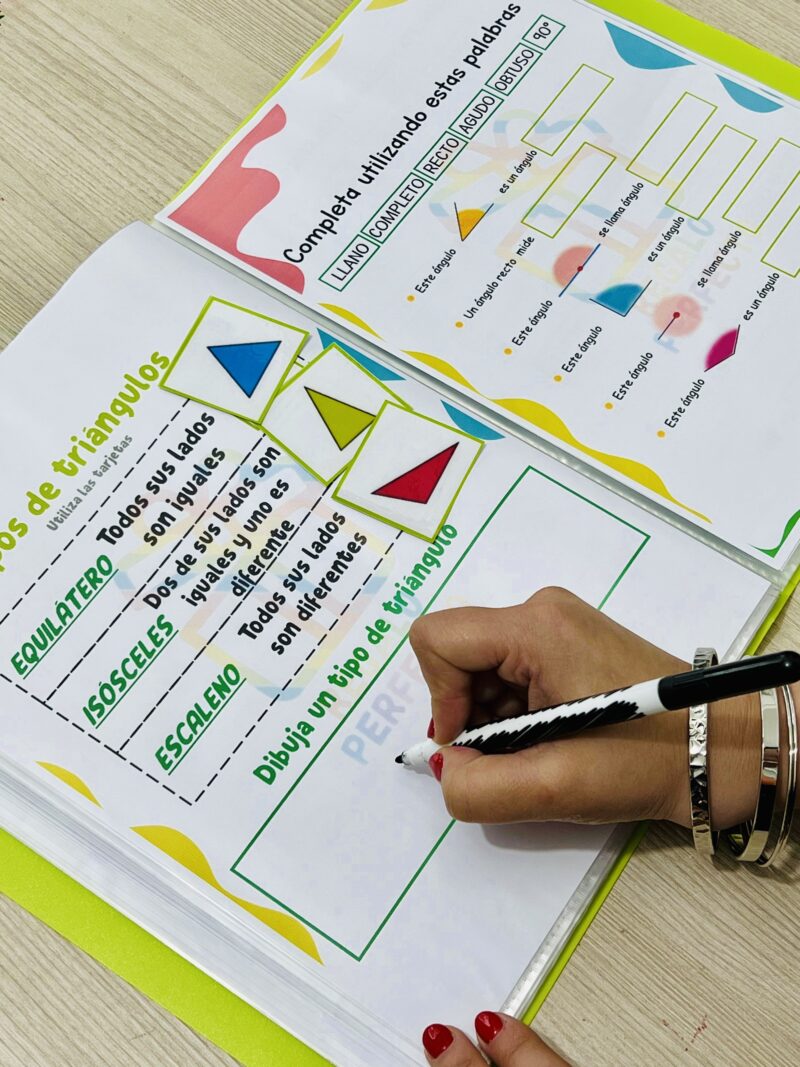 pos de triángulos
Utiliza las tarjetas
EQUILÁTERO
Todos sus lados
son iguales
ISÓSCELES
Dos de sus lados son
iguales y uno es
diferente
ESCALENO
Todos sus lados
son diferentes
Dibuja un tipo de triángulo
Completa utilizando estas palabras
LLANO COMPLETO RECTO AGUDO OBTUSO 90°
Este ángulo es un ángulo
Un ángulo recto mide
Este ángulo se llama ángulo
Este ángulo es un ángulo
Este ángulo se llama ángulo
Este ángulo es un ángulo